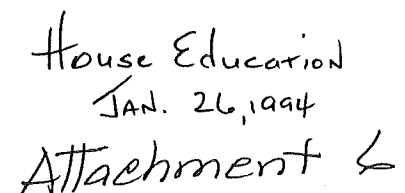 House Education
JAN. 26, 1994
Attachment 6